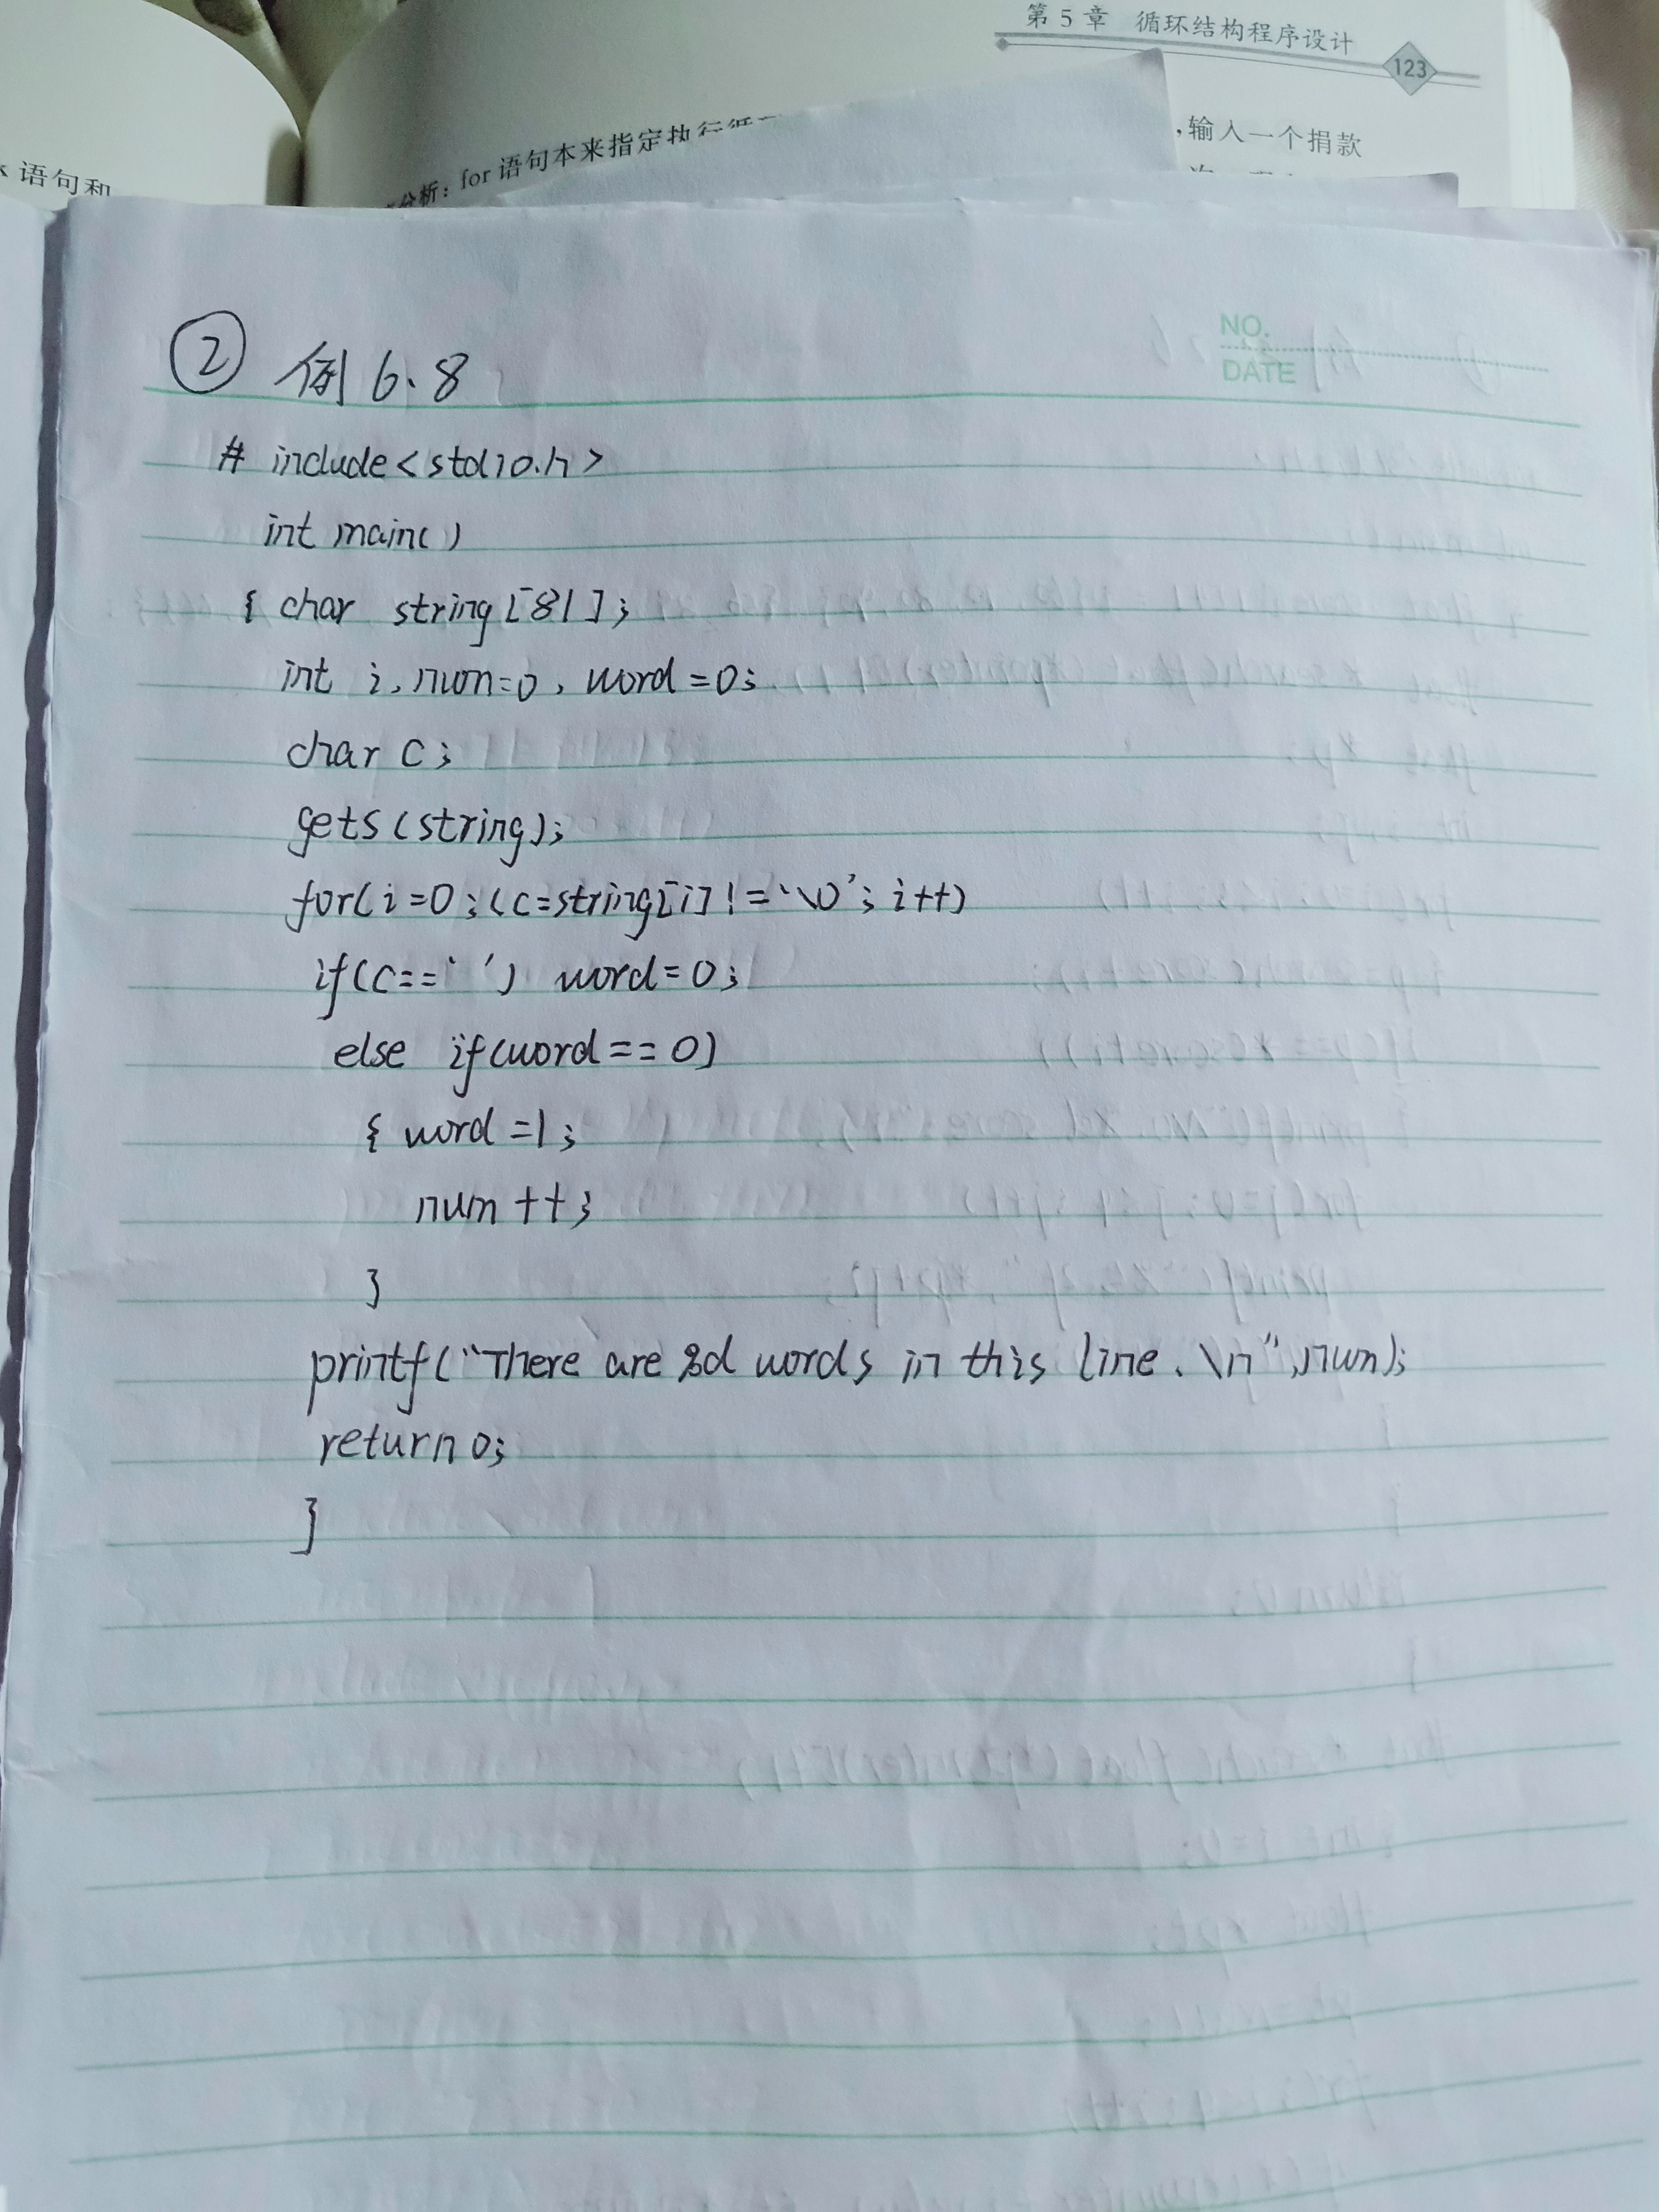 第 5 章 循环结构程序设计
123
分析：for 语句本来指定执行循
，输入一个捐款
语句和
② 例 6.8
NO.
DATE
# include<stdio.h>
int main()
{ char string[81];
int i,num=0,word=0;
char c;
gets(string);
for(i=0;(c=string[i]!='\0';i++)
if(c==' ') word=0;
else if(word==0)
{ word=1;
num ++;
}
printf("There are %d words in this line.\n",num);
return 0;
}